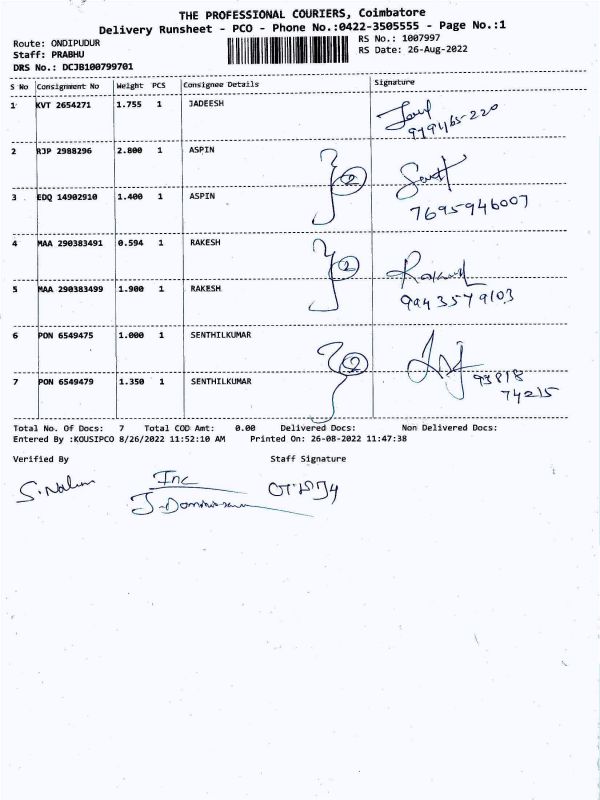 THE PROFESSIONAL COURIERS, Coimbatore
Delivery Runsheet - PCO - Phone No.:0422-3505555 - Page No.:1
Route: ONDIPUDUR
RS No.: 1007997
Staff: PRABHU
RS Date: 26-Aug-2022
DRS No.: DCJB100799701
S No Consignment No Weight PCS Consignee Details Signature
1 KVT 2654271 1.755 1 JADEESH
2 RJP 2988296 2.800 1 ASPIN
2
3 EDQ 14902910 1.400 1 ASPIN
7695946007
4 MAA 290383491 0.594 1 RAKESH
2
5 MAA 290383499 1.900 1 RAKESH
9943579103
6 PON 6549475 1.000 1 SENTHILKUMAR
2
7 PON 6549479 1.350 1 SENTHILKUMAR
93818
74215
Total No. Of Docs: 7 Total COD Amt: 0.00 Delivered Docs: Non Delivered Docs:
Entered By :KOUSIPCO 8/26/2022 11:52:10 AM Printed On: 26-08-2022 11:47:38
Verified By Staff Signature
Inc